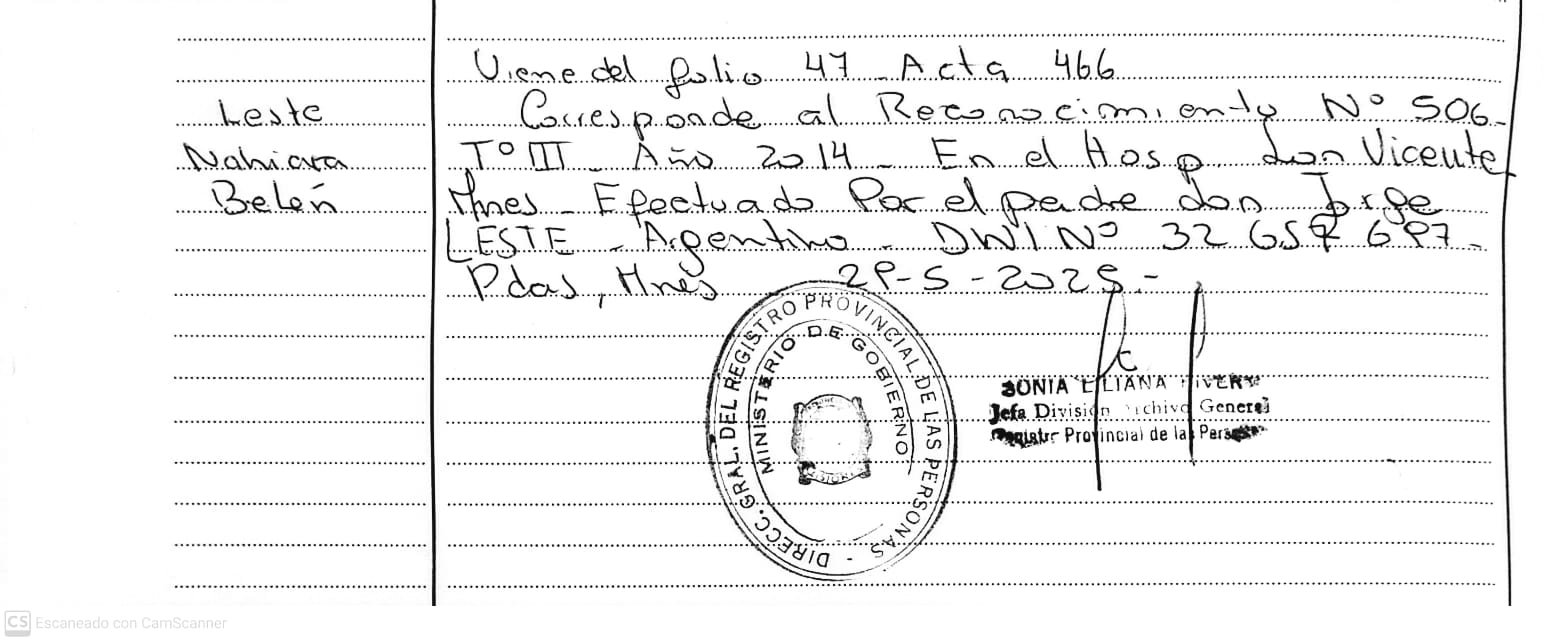 Leste
Nahiara
Belén
Viene del folio 47 - Acta 466
Corresponde al Reconocimiento Nº 506-
Tº III - Año 2014 - En el Hosp. don Vicente
Mnes - Efectuado Por el padre don Jorge
LESTE - Argentino - DNI Nº 32 657 697-
Pdas, Mnes 29-5-2025-
DIRECC. GRAL. DEL REGISTRO PROVINCIAL DE LAS PERSONAS -
MINISTERIO DE GOBIERNO
SONIA LILIANA
Jefa División Archivo General
Registro Provincial de las Personas
CS Escaneado con CamScanner